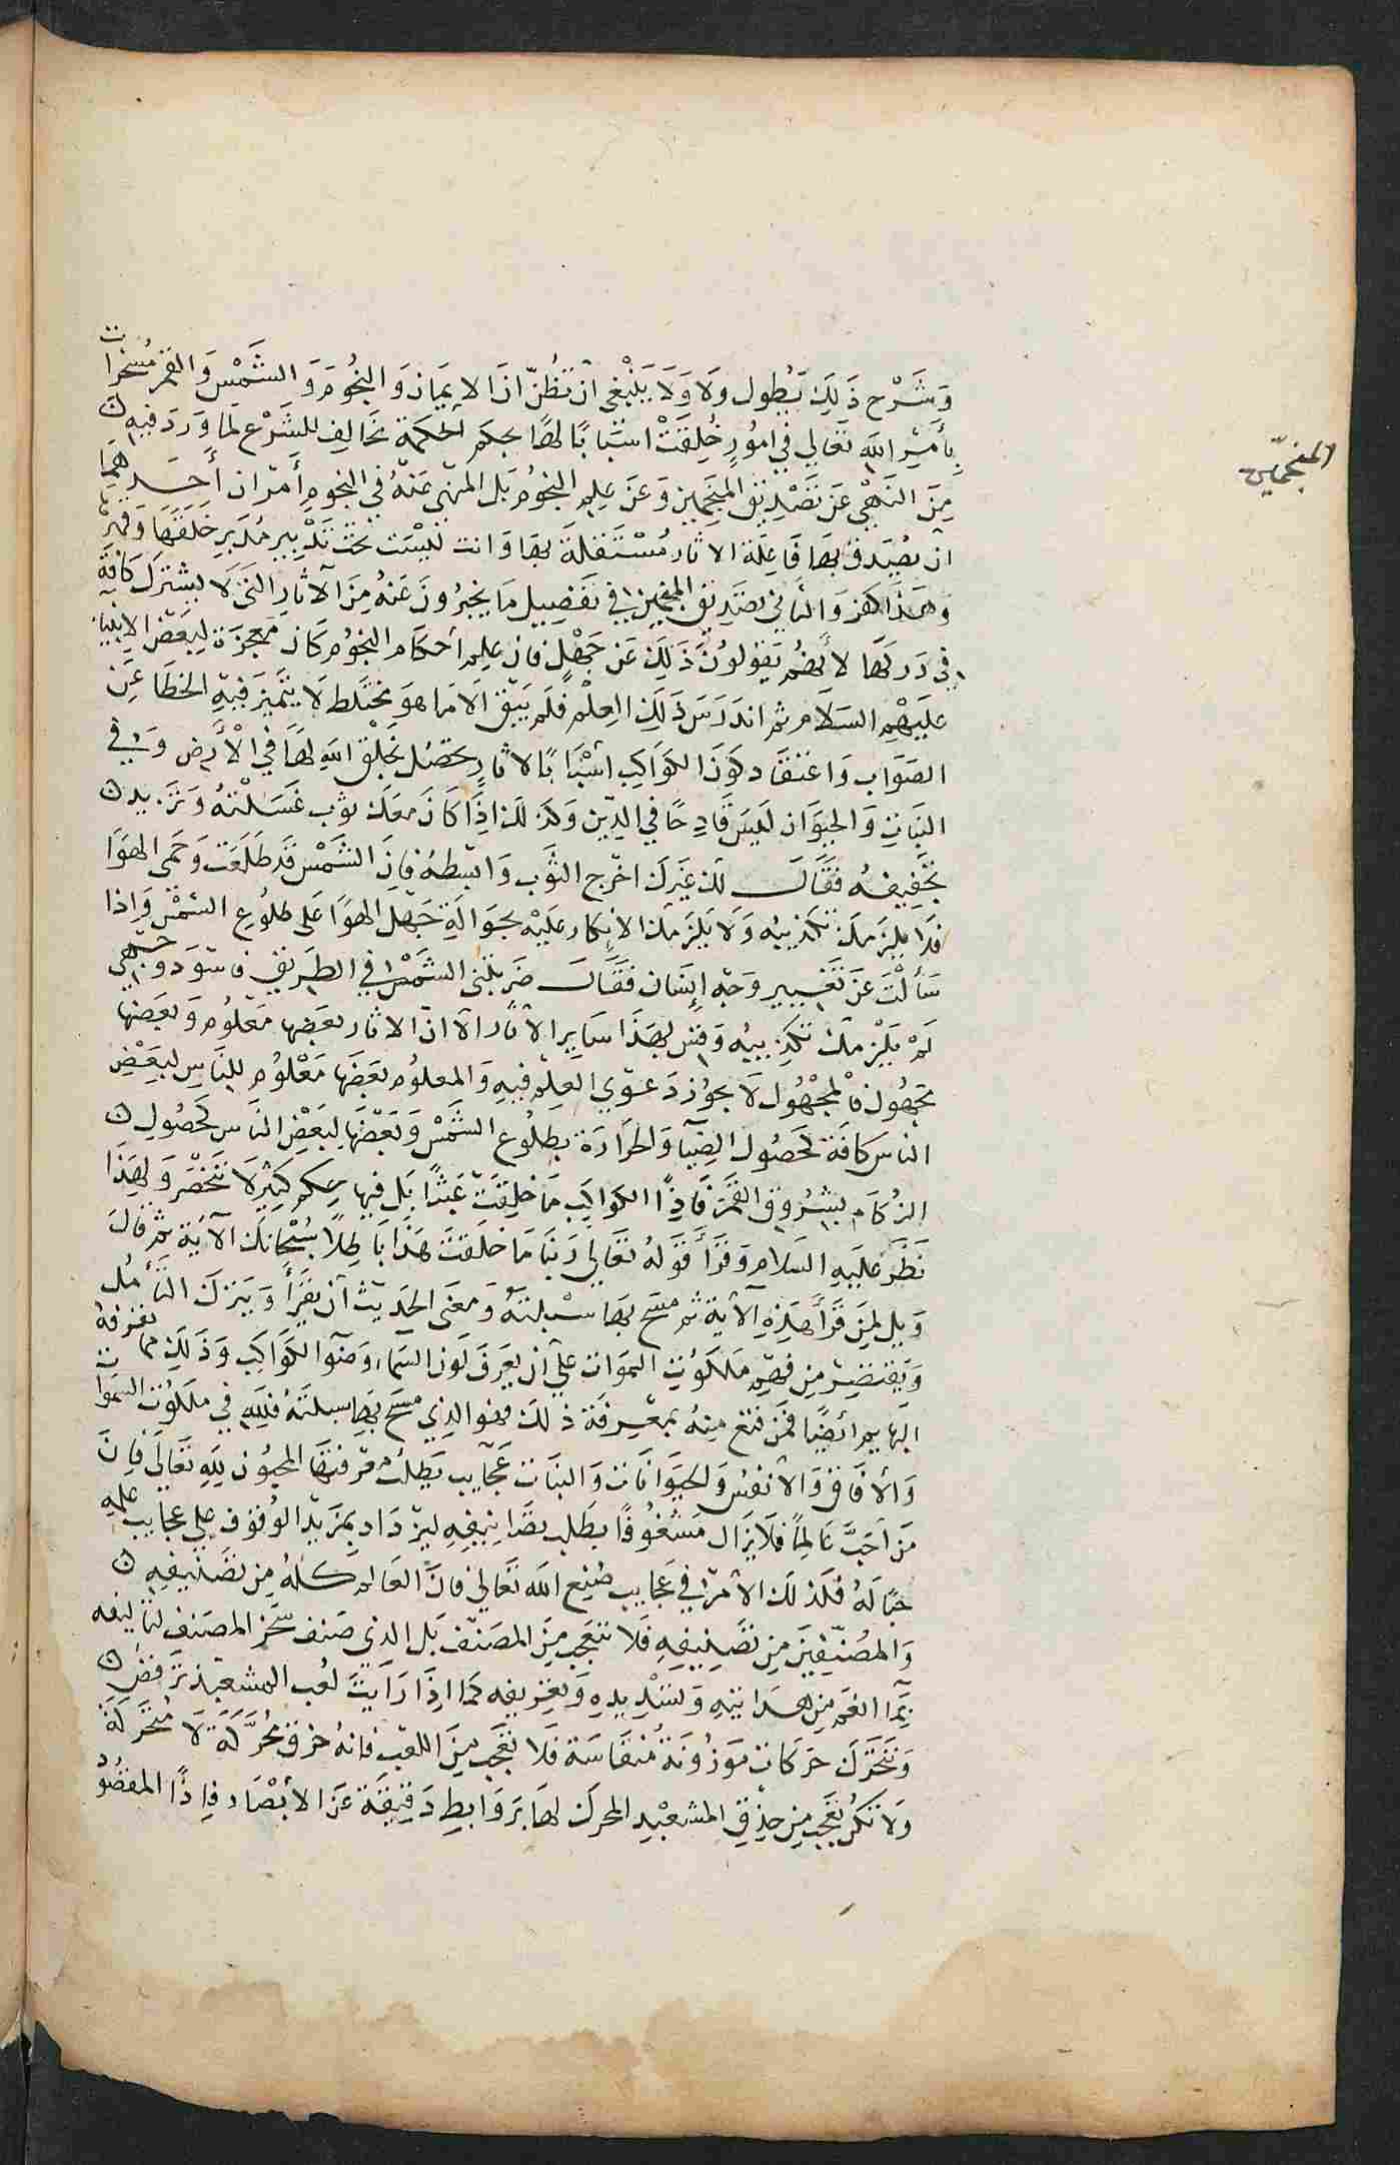 وَشَرْح ذَلِكَ يَطُول وَلَا وَلَا يَنْبَغِي أن تَظُنّ اذَا لايمَان وَالنجُوم وَالشَّمْسَ وَالقَمَر مُسَخرات
بِأمْرِ اللهِ تعَالي في امُورٍ خُلِقَتْ اسْبَابًا لهَا بحكم الحكمة تخالف للشَرْع لمَا وَرَدَ فيهِ
مِنَ النَهْي عَن تَصْدِيْق المنَجمِين وَعَن عِلم النجُوم بَل المنهي عَنْهُ في النجوم أمْرَان أحَدهمَا
ان يُصَدق بهَا فَاعِلَة الاثار مُسْتَقلة بهَا وَانت ليْسَت تحت تَدْبِير مُدَبر خَلَقَهَا وَقهَرهَا
وَهذَا كفر وَالثاني تصْدِيق المنجمين في تفصِيل مَا يخبرُونَ عَنهُ مِنَ الآثارِ التي لا يشترك كافة
في دركها لأنهُم يَقولونَ ذَلِكَ عَن جَهْلٍ فان علم أحكام النجُوم كان معجزة لبَعْض الانبيَاء
عليْهم السَلام ثم اندَرَسَ ذَلِكَ العِلْم فلَم يَبْق الا مَا هوَ مختلط لا يتميز فيهِ الخطَا عَن
الصَوَاب وَاعتقاد كوْن الكوَاكِب اسْبَابًا لاثارٍ تحصُل بخلق الله لهَا في الأَرض وَفي
النبَاتِ وَالحيوَان ليسَ قادِحًا في الدّين وَكذلك اذَا كان معَك ثوب غَسَلتهُ وَتريد
تجفيفهُ فقالَ لك غيرك اخرج الثوب وَابسطهُ فان الشمْس قد طلعَت وَحمي الهوَا
فلا يلزمك تكذيبُه وَلا يَلزمك الانكار عليْه بحوَالةِ حمي الهوَا عَلى طلُوع الشمْس وَاذا
سَألتَ عَن تغيير وَجه انسَان فقالَ ضرَبتني الشمْس في الطريق فاسوَد وَجهي
لم يلزمك تكذيبه وَقِس بهَذا سَاير الآثار الا ان الاثار بعضها معلُوم وَبعضها
مجهُول فالمجْهُول لا يجوز دَعوَي العلم فيهِ وَالمعلوم بعضها معلُوم للنَاس لبعْض
الناس كافة كحصُول الضيآ وَالحرَارَة بطلوع الشمْس وَبعضها لبعض الناس كحصُول
الزكام بشرُوق القمر فاذًا الكوَاكِب مَا خلقت عَبثًا بل فيها حكم كثير لا تنحصر وَلهذَا
نَظَر عليهِ السَلام وَقرَأ قوله تعَالي رَبنا مَا خلقت هذا باطِلاً سُبْحَانك الآية ثم قالَ
وَيل لمن قرأ هذِهِ الآية ثم مسَح بهَا سبلتهُ وَمعنى الحَديث ان يقرَأ وَيترك التأمُل
وَيَقتصِر مِن فهم ملكوت السموَات علي ان يعرف لوْن السمَاء وَضوْ الكوَاكِب وَذلك مما تعرفهُ
البهايم أيضًا فمن قنع منهُ بمعرفة ذلك فهو الذي مسَح بهَا سبلتهُ فلله في ملكوت السموَات
وَالآفَاق وَالانفس وَالحيوَانات وَالنبات عجَايب يَطلب معرفتها المحبُون للهِ تعَالي فان
مَن أحَبَّ عَالمًا فلا يزَال مَشغُوفًا بطلب تصَانيفِهِ ليزدَاد بمزيد الوقوف علي عجايب علمهِ
حبًا لهُ فكذلك الأمر في عجايب صُنع الله تعَالي فان العالم كلهُ مِن تصْنيفِهِ
وَالمصَنّفينَ مِن تَصنيفِهِ فلا تتعَجب مِنَ المصَنف بَل الذي صَنف سَخر المصَنف لتاليفه
بمَا انعَم مِن هدايته وَتسْديدهِ وَتعريفه كما اذا رَايْتَ لعب المشعبذ ترقص
وَتتَحَرك حرَكات مَوْزُونَة مُتقاسَة فلا تعْجب مِنَ اللعب فانهُ خرق محَرَّكة لا مُتحَركة
وَلا تكُن تعجب مِن حِذق المشعبذ المحرك لهَا برَوَابط دَقيقة عَن الأبصَار فاذًا المقصُود
المنجمين